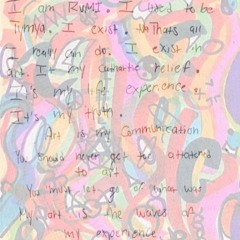 I am RUMI. I used to be
I exist. thats all
I really can do. I exist in
art. It my cathartic relief.
It's my life experience.
It's my truth.
Art is my communication
You should never get the attatched
to art
You must let go of what was
My art is the waves of
my experience.